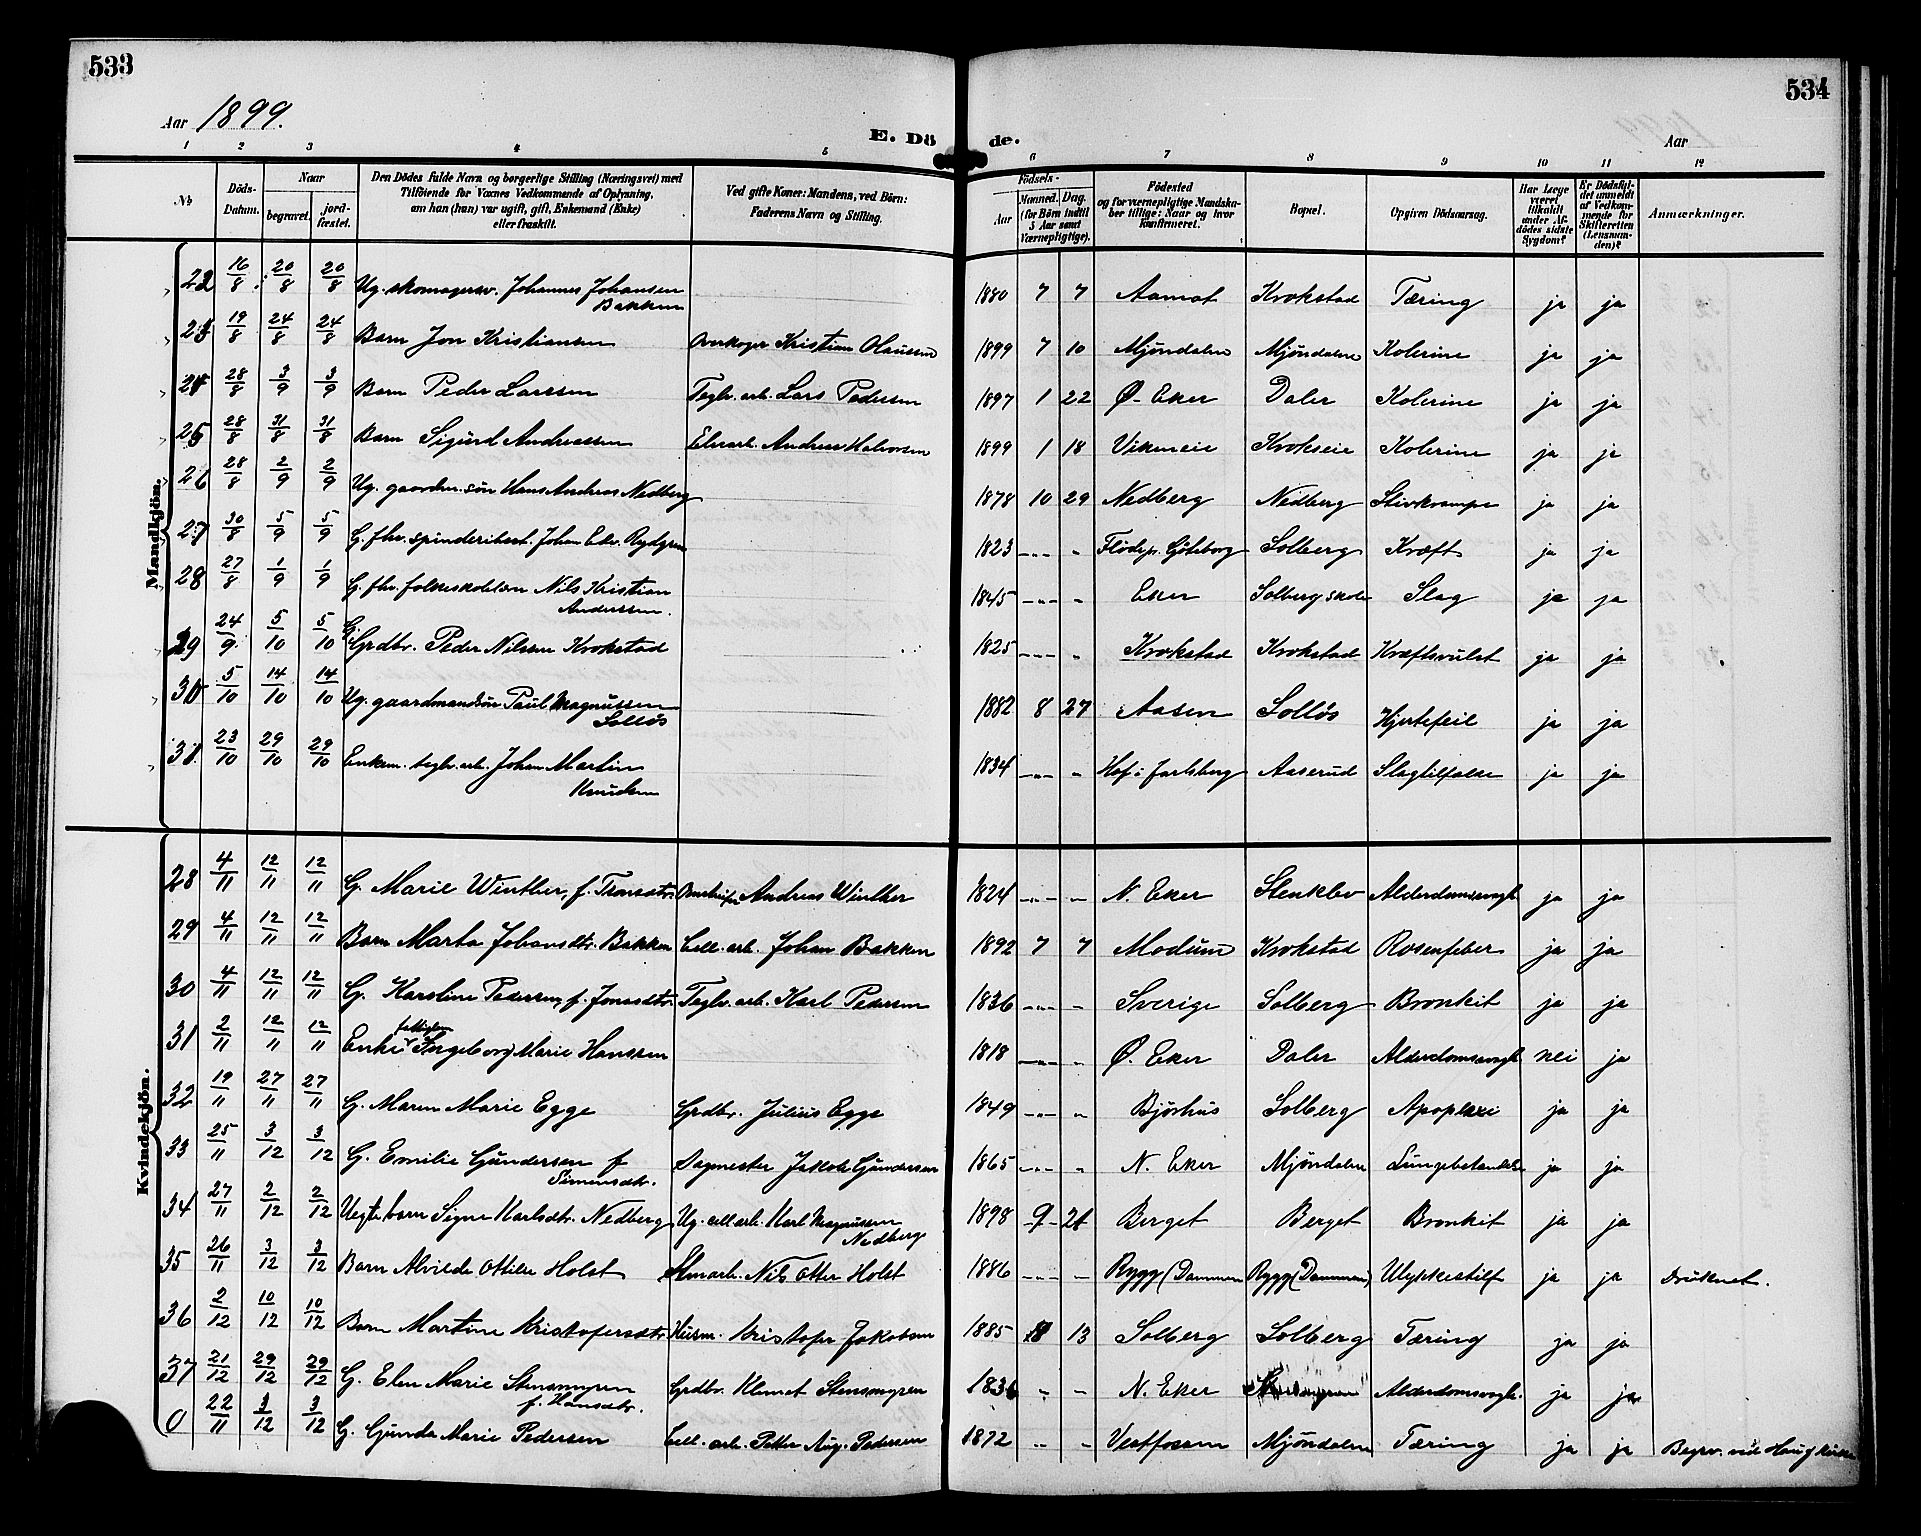 533
534
Aar 1899.
E. Dö de.
Aar
1 2 3 4 5 6 7 8 9 10 11 12
№
Döds-Datum.
Naar
begravet.
jord-fæstet.
Den Dödes fulde Navn og borgerlige Stilling (Næringsvei) med Tilföiende for Voxnes Vedkommende af Oplysning, om han (hun) var ugift, gift, Enkemand (Enke) eller fraskilt.
Ved gifte Koner: Mandens, ved Börn: Faderens Navn og Stilling.
Födsels-
Aar
Maaned. Dag.
(for Börn indtil 3 Aar samt Værnepligtige).
Födested og for værnepligtige Mandskaber tillige: Naar og hvor konfirmeret.
Bopæl.
Opgiven Dödsaarsag.
Har Læge været tilkaldt under Afdödes sidste Sygdom?
Er Dödsfaldet anmeldt af Vedkommende for Skifteretten (Lensmanden)?
Anmærkninger.
Mandkjön.
22 16/8 20/8 20/8 Ug. skomagersv. Johannes Johansen Bakken 1880 7 7 Aamot Krokstad Tæring ja ja
23 19/8 24/8 24/8 Barn Jon Kristiansen Overkoger Kristian Olaussen 1899 7 10 Mjøndalen Mjøndalen Kolerine ja ja
24 28/8 3/9 3/9 Barn Peder Larssen Teglv. arb. Lars Pedersen 1897 1 22 Ø. Eker Daler Kolerine ja ja
25 28/8 31/8 31/8 Barn Sigurd Andreassen Elvearb. Andreas Halvorsen 1899 1 18 Vikeneie Krokseie Kolerine ja ja
26 28/8 2/9 2/9 Ug. gaardm. søn Hans Andreas Nedberg 1878 10 29 Nedberg Nedberg Stivkrampe ja ja
27 30/8 5/9 5/9 G. fhv. spinderibest. Johan Edv. Rydgren 1823 Göteborg Solberg Kræft ja ja
28 27/8 1/9 1/9 G. fhv. folkeskolelærer Nils Kristian Anderssen. 1845 Eker Solberg skole Slag ja ja
29 24/9 5/10 5/10 G. Grdbr. Peder Nilssen Krokstad 1825 Krokstad Krokstad Kræftsvulst ja ja
30 5/10 14/10 14/10 Ug. gaardmandsøn Paul Magnussen Solløs 1882 8 27 Aasen Solløs Hjertefeil ja ja
31 23/10 29/10 29/10 Enkem. teglv. arb. Johan Martin Knudsen 1834 Hof i Jarlsberg Aaserud Slagtilfælde ja ja
Kvindekjön.
28 4/11 12/11 12/11 G. Marie Winther, f. Andreas Winther 1824 N. Eker Stenklev Alderdomssvagh. ja ja
29 4/11 12/11 12/11 Barn Marta Johansdtr. Bakken Cell. arb. Johan Bakken 1892 7 7 Modum Krokstad Rosenfeber ja ja
30 4/11 12/11 12/11 G. Karoline Pedersen, f. Jonasdtr. Teglv. arb. Karl Pedersen 1836 Sverige Solberg Bronkit ja ja
31 2/11 12/11 12/11 Enke fattiglem Ingeborg Marie Hanssen 1818 Ø. Eker Daler Alderdomssvagh. nei ja
32 19/11 27/11 27/11 G. Maren Marie Egge Grdbr. Julius Egge 1849 Bjørhus Solberg Apoplexi ja ja
33 25/11 3/12 3/12 G. Emilie Gundersen f. Simensdtr. Sagmester Jakob Gundersen 1865 N. Eker Mjøndalen Lungebetændelse ja ja
34 27/11 2/12 2/12 Uegte barn Signe Karlsdtr. Nedberg Ug. cell. arb. Karl Magnussen Nedberg 1898 9 21 Berget Berget Bronkit ja ja
35 26/11 3/12 3/12 Barn Alvilde Ottilie Holst Nils Otter Holst 1886 Rygg (Dammen Rygg (Dammen) Ulykkestilf ja ja Druknet.
36 2/12 10/12 10/12 Barn Martine Kristofersdtr. Husm. Kristofer Jakobsen 1885 8 13 Solberg Solberg Tæring ja ja
37 21/12 29/12 29/12 G. Elen Marie Stensmyren f. Hansdtr. Grdbr. Klemet Stensmyren 1836 N. Eker Alderdomssvagh. ja ja
0 22/11 3/12 3/12 G. Gunda Marie Pedersen Cell. arb. Petter Aug. Pedersen 1872 Vestfossen Mjøndalen Tæring ja ja Begrv. ved Haug kirke